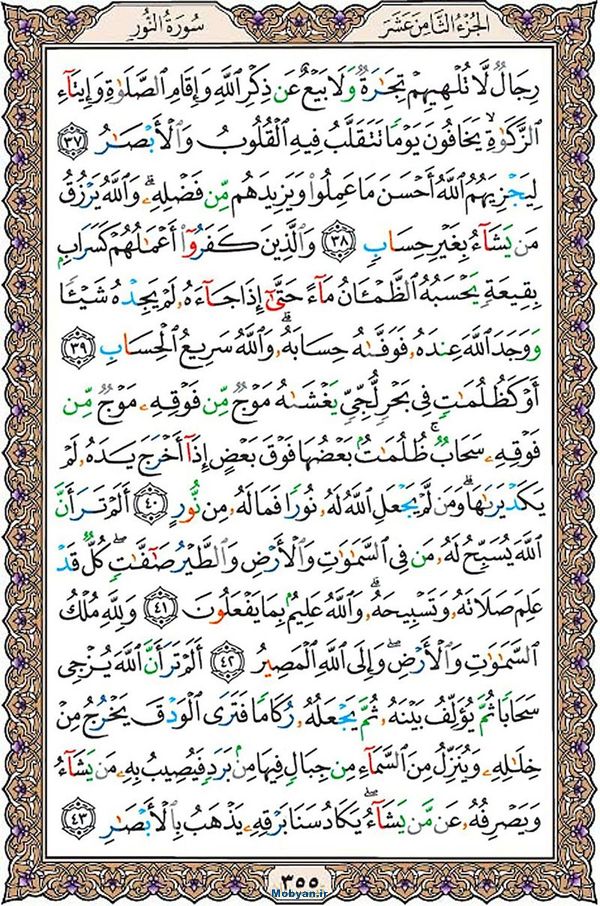 الجزء الثامن عشر
سورة النور
رِجَالٌ لَّا تُلْهِيهِمْ تِجَٰرَةٌ وَلَا بَيْعٌ عَن ذِكْرِ ٱللَّهِ وَإِقَامِ ٱلصَّلَوٰةِ وَإِيتَآءِ
ٱلزَّكَوٰةِ ۙ يَخَافُونَ يَوْمًا تَتَقَلَّبُ فِيهِ ٱلْقُلُوبُ وَٱلْأَبْصَٰرُ ٣٧
لِيَجْزِيَهُمُ ٱللَّهُ أَحْسَنَ مَا عَمِلُوا۟ وَيَزِيدَهُم مِّن فَضْلِهِۦ ۗ وَٱللَّهُ يَرْزُقُ
مَن يَشَآءُ بِغَيْرِ حِسَابٍ ٣٨ وَٱلَّذِينَ كَفَرُوٓا۟ أَعْمَٰلُهُمْ كَسَرَابٍۭ
بِقِيعَةٍ يَحْسَبُهُ ٱلظَّمْـَٔانُ مَآءً حَتَّىٰٓ إِذَا جَآءَهُۥ لَمْ يَجِدْهُ شَيْـًٔا
وَوَجَدَ ٱللَّهَ عِندَهُۥ فَوَفَّىٰهُ حِسَابَهُۥ ۗ وَٱللَّهُ سَرِيعُ ٱلْحِسَابِ ٣٩
أَوْ كَظُلُمَٰتٍ فِى بَحْرٍ لُّجِّىٍّ يَغْشَىٰهُ مَوْجٌ مِّن فَوْقِهِۦ مَوْجٌ مِّن
فَوْقِهِۦ سَحَابٌ ۚ ظُلُمَٰتٌۢ بَعْضُهَا فَوْقَ بَعْضٍ إِذَآ أَخْرَجَ يَدَهُۥ لَمْ
يَكَدْ يَرَىٰهَا ۗ وَمَن لَّمْ يَجْعَلِ ٱللَّهُ لَهُۥ نُورًا فَمَا لَهُۥ مِن نُّورٍ ٤٠ أَلَمْ تَرَ أَنَّ
ٱللَّهَ يُسَبِّحُ لَهُۥ مَن فِى ٱلسَّمَٰوَٰتِ وَٱلْأَرْضِ وَٱلطَّيْرُ صَٰٓفَّٰتٍ ۖ كُلٌّ قَدْ
عَلِمَ صَلَاتَهُۥ وَتَسْبِيحَهُۥ ۗ وَٱللَّهُ عَلِيمٌۢ بِمَا يَفْعَلُونَ ٤١ وَلِلَّهِ مُلْكُ
ٱلسَّمَٰوَٰتِ وَٱلْأَرْضِ ۖ وَإِلَى ٱللَّهِ ٱلْمَصِيرُ ٤٢ أَلَمْ تَرَ أَنَّ ٱللَّهَ يُزْجِى
سَحَابًا ثُمَّ يُؤَلِّفُ بَيْنَهُۥ ثُمَّ يَجْعَلُهُۥ رُكَامًا فَتَرَى ٱلْوَدْقَ يَخْرُجُ مِنْ
خِلَٰلِهِۦ وَيُنَزِّلُ مِنَ ٱلسَّمَآءِ مِن جِبَالٍ فِيهَا مِنۢ بَرَدٍ فَيُصِيبُ بِهِۦ مَن يَشَآءُ
وَيَصْرِفُهُۥ عَن مَّن يَشَآءُ ۖ يَكَادُ سَنَا بَرْقِهِۦ يَذْهَبُ بِٱلْأَبْصَٰرِ ٤٣
٣٥٥
Mobyan.ir